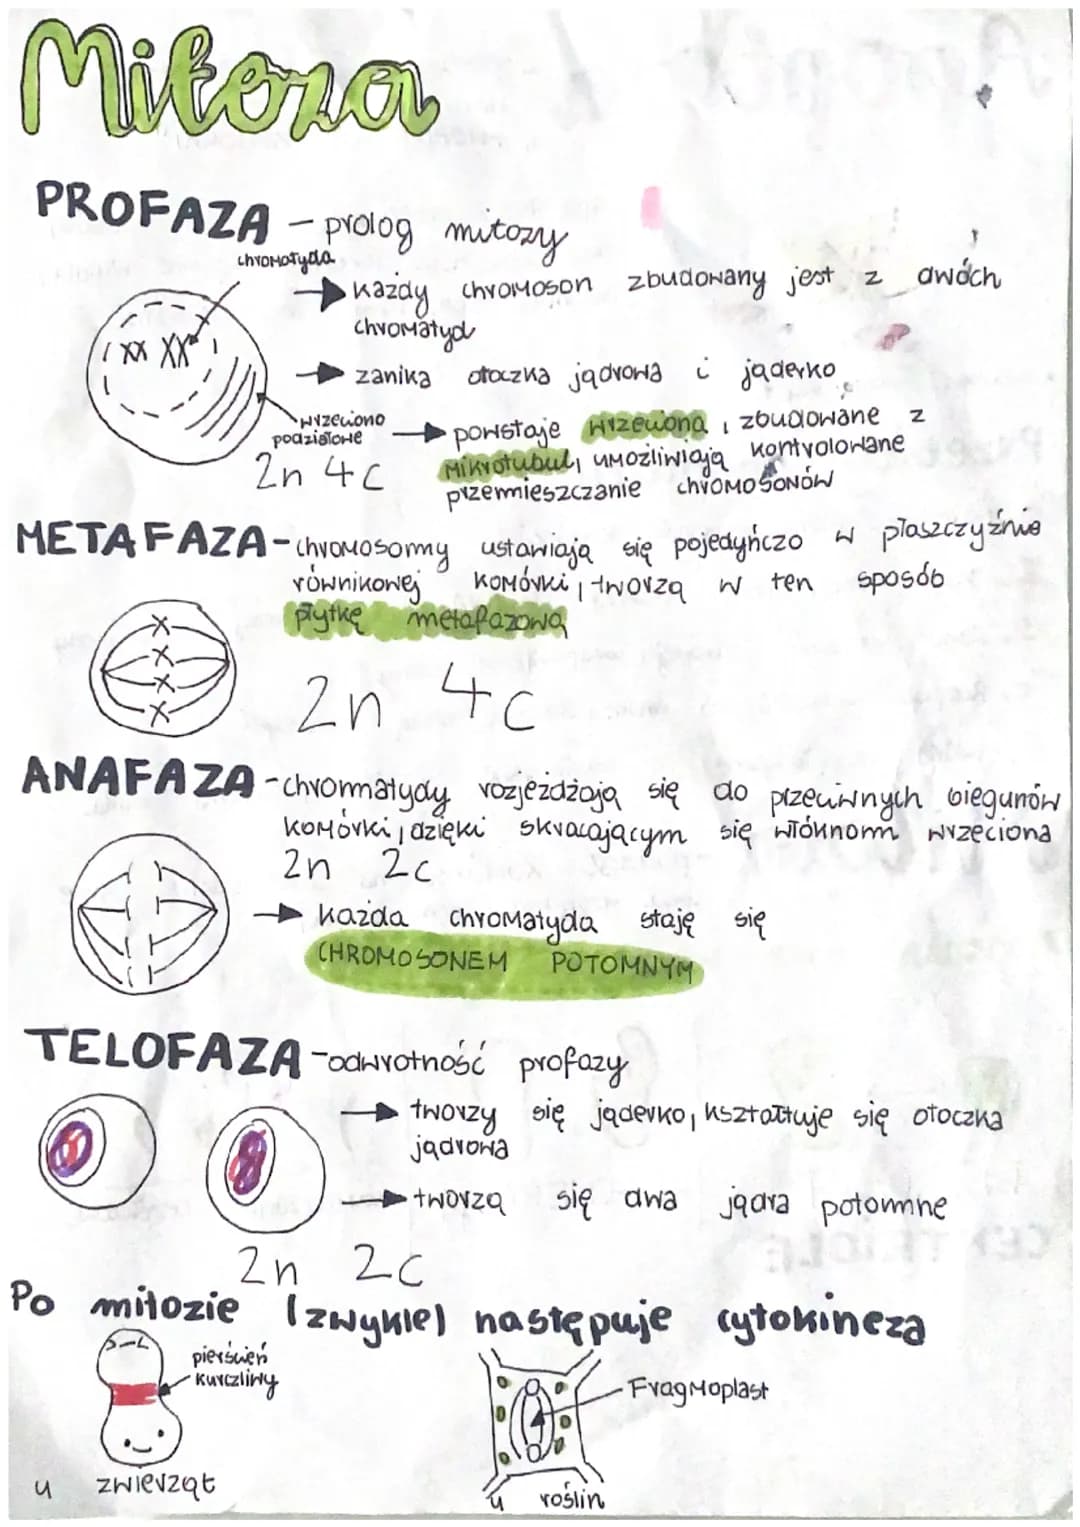 Mitoza
PROFAZA – prolog mitozy
chromatyda
→ każdy chromoson zbudowany jest z dwóch
chromatyd
→ zanika otoczka jądrowa i jąderko
wrzeciono
podziałowe
→ powstaje wrzeciona, zbudowane z
mikrotubul, umożliwiają kontrolowane
przemieszczanie chromosonów
2n 4c
METAFAZA-chromosomy ustawiają się pojedyńczo w płaszczyźnie
równikowej komórki, tworzą w ten sposób
płytkę metafazową
2n 4c
ANAFAZA-chromatydy rozjeżdżają się do przeciwnych biegunów
komórki, dzięki skracającym się włóknom wrzeciona
2n 2c
→ każda chromatyda staję się
CHROMOSONEM POTOMNYM
TELOFAZA-odwrotność profazy
→ tworzy się jąderko, kształtuje się otoczka
jądrowa
→ tworzą się dwa jądra potomne
2n 2c
Po mitozie (zwykle) następuje cytokineza
pierścień
kurczliwy
Fragmoplast
u zwierząt
u roślin